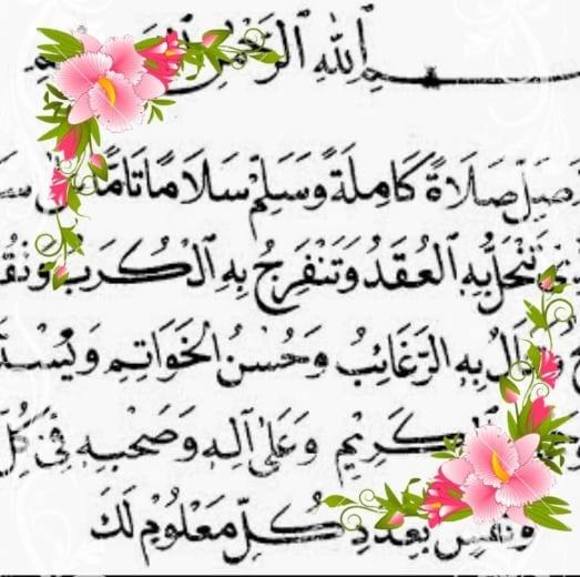 ـمِ ٱللهِ ٱلرَّحْمٰنِ
صَلِّ صَلَاةً كَامِلَةً وَسَلِّمْ سَلَامًا تَامًّا
تَنْحَلُّ بِهِ ٱلْعُقَدُ وَتَنْفَرِجُ بِهِ ٱلْكُرَبُ وَتُقْـ
بِهِ ٱلرَّغَائِبُ وَحُسْنُ ٱلْخَوَاتِمِ وَيُسْتَـ
ٱلْكَرِيْمِ وَعَلٰى آلِهِ وَصَحْبِهِ فِيْ كُلِّ
وَنَفَسٍ بِعَدَدِ كُلِّ مَعْلُوْمٍ لَكَ